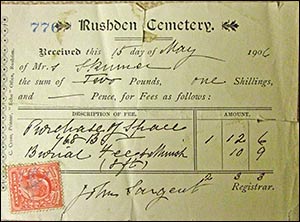 776 Rushden Cemetery.
Received this 15 day of May 1906
of Mr. S Skinner
the sum of Two Pounds, one Shillings,
and — Pence, for Fees as follows:
DESCRIPTION OF FEE. AMOUNT.
Purchase of Space 1 12 6
168 B
Burial Fee 10 9
2 3 3
John Sargent Registrar.